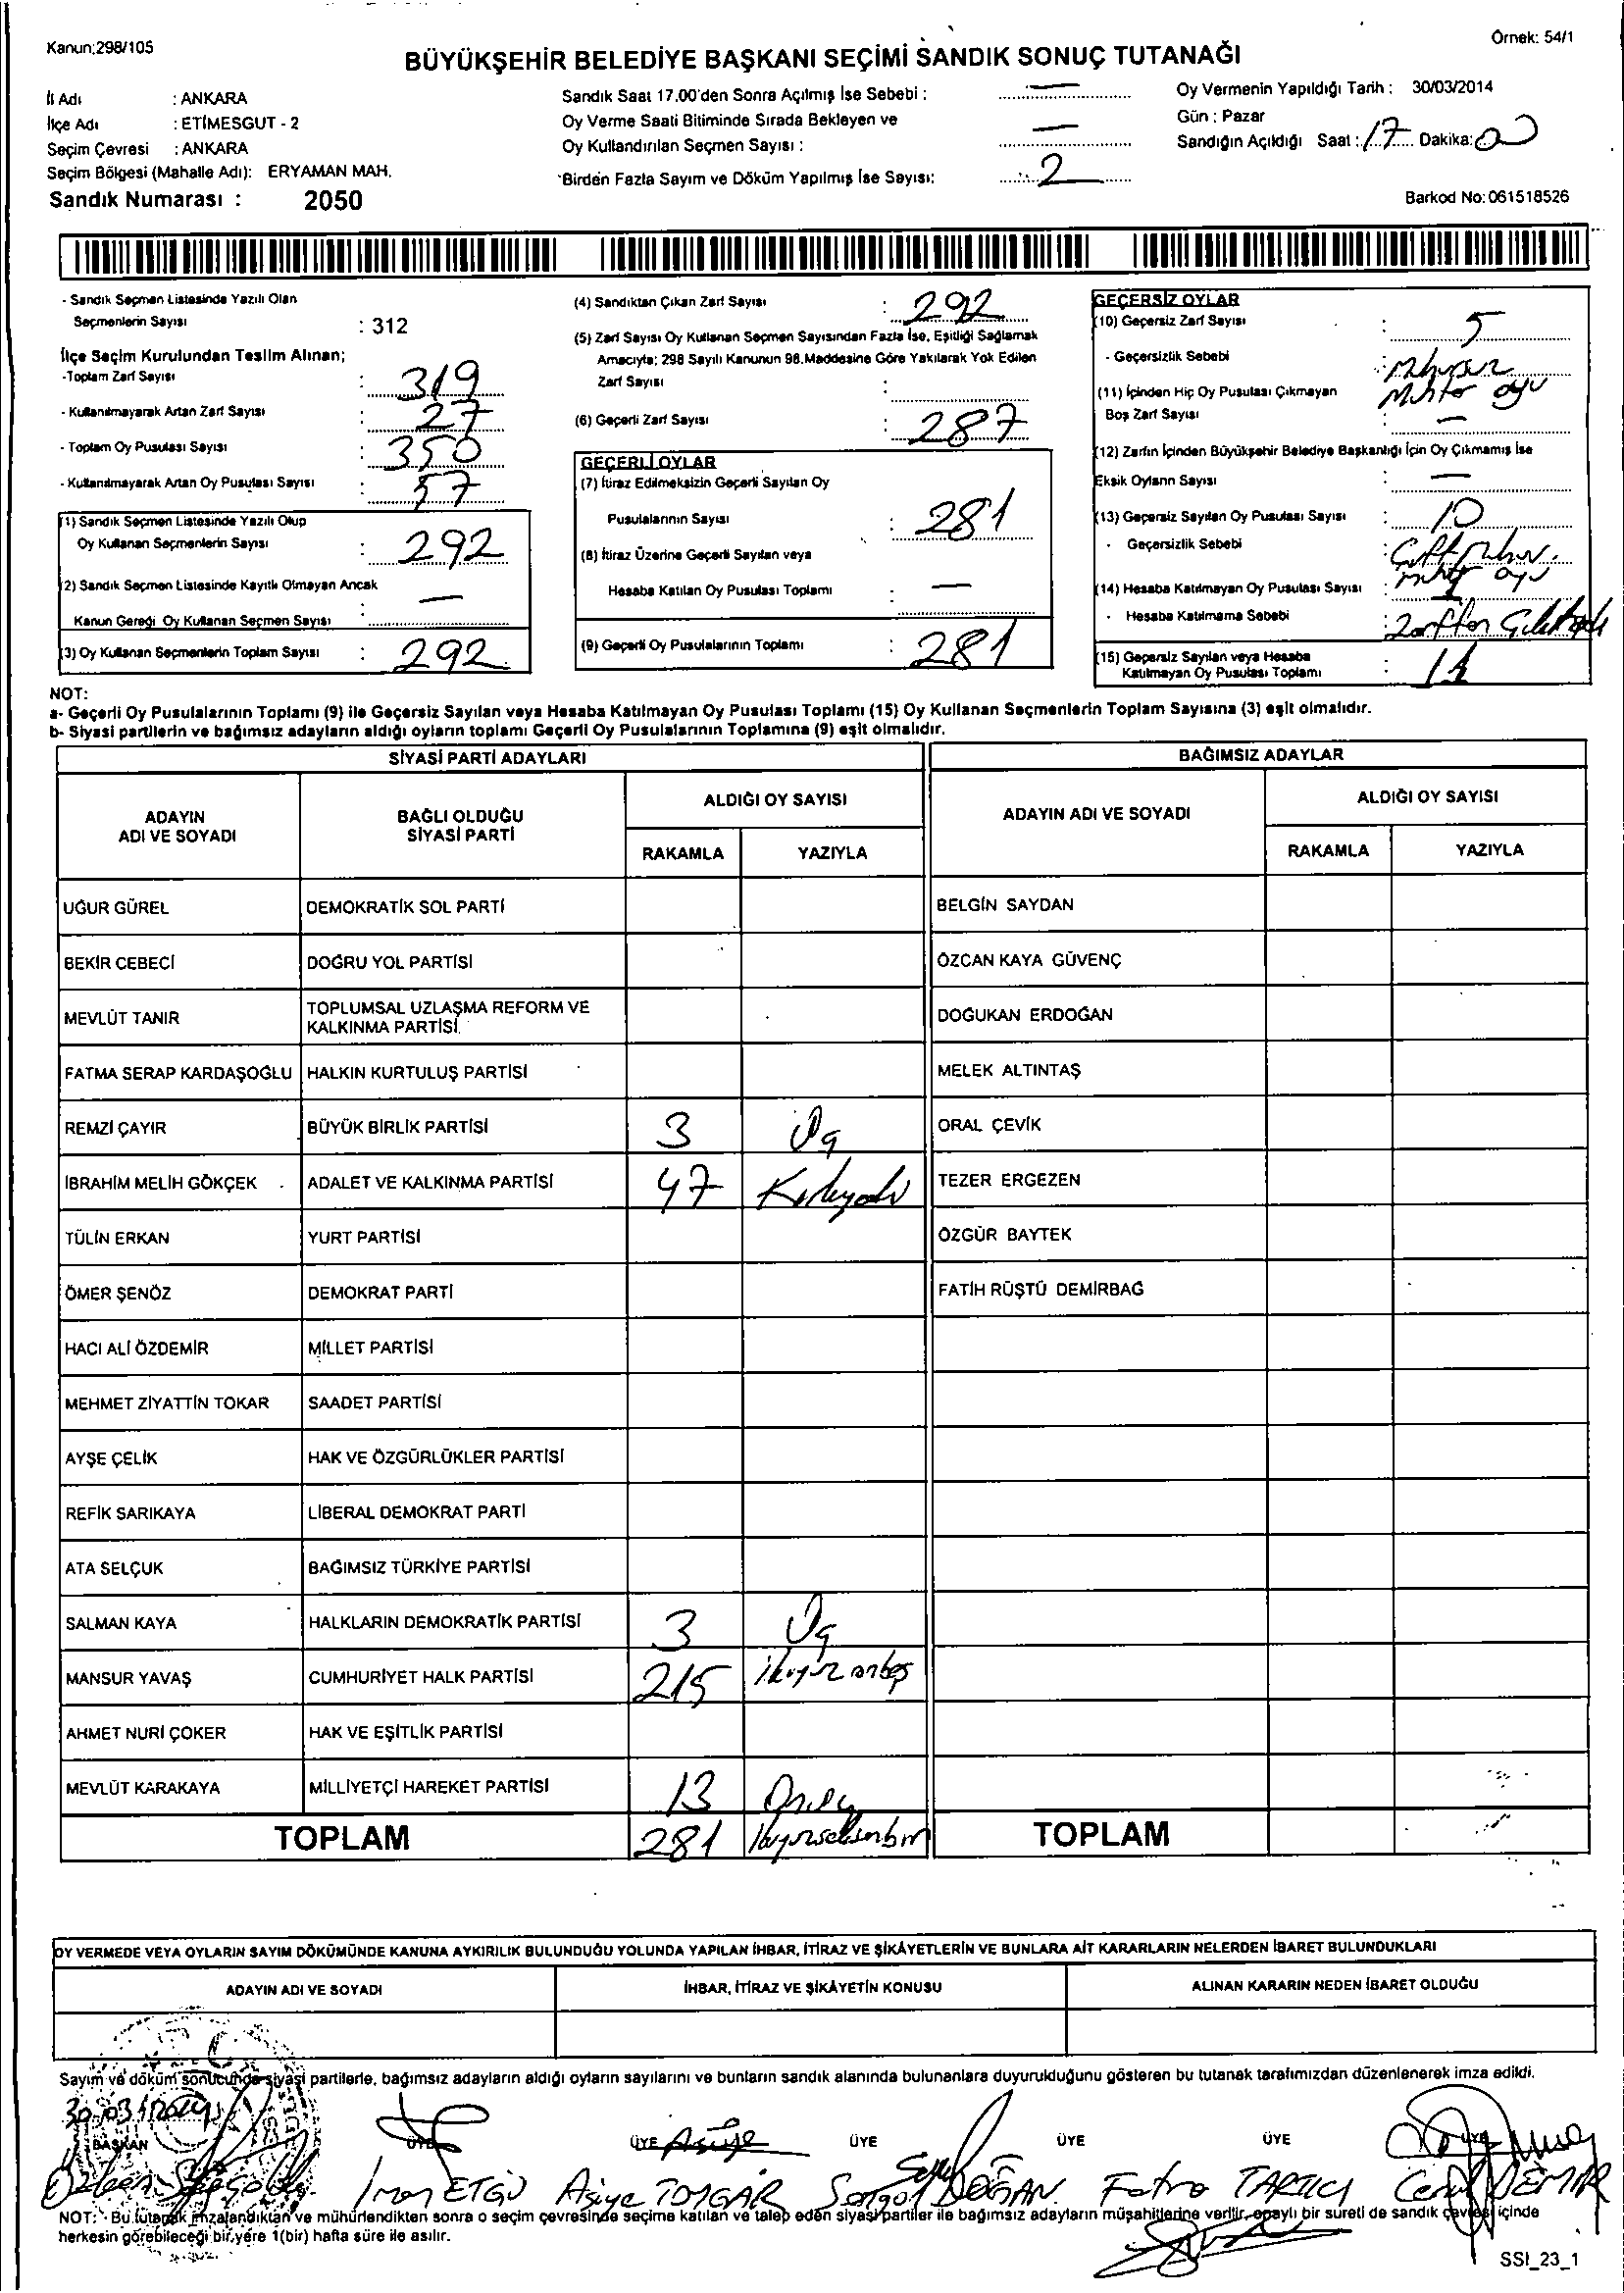 Kanun;298/105
Örnek: 54/1
BÜYÜKŞEHİR BELEDİYE BAŞKANI SEÇİMİ SANDIK SONUÇ TUTANAĞI
İl Adı : ANKARA
İlçe Adı : ETİMESGUT - 2
Seçim Çevresi : ANKARA
Seçim Bölgesi (Mahalle Adı): ERYAMAN MAH.
Sandık Numarası : 2050
Sandık Saat 17.00'den Sonra Açılmış İse Sebebi : —
Oy Verme Saati Bitiminde Sırada Bekleyen ve
Oy Kullandırılan Seçmen Sayısı : —
Birden Fazla Sayım ve Döküm Yapılmış İse Sayısı: 2
Oy Vermenin Yapıldığı Tarih : 30/03/2014
Gün : Pazar
Sandığın Açıldığı Saat : 17 Dakika: 00
Barkod No: 061518526
- Sandık Seçmen Listesinde Yazılı Olan
Seçmenlerin Sayısı : 312
İlçe Seçim Kurulundan Teslim Alınan;
-Toplam Zarf Sayısı : 319
- Kullanılmayarak Artan Zarf Sayısı : 27
- Toplam Oy Pusulası Sayısı : 350
- Kullanılmayarak Artan Oy Pusulası Sayısı : 57
(1) Sandık Seçmen Listesinde Yazılı Olup
Oy Kullanan Seçmenlerin Sayısı : 292
(2) Sandık Seçmen Listesinde Kayıtlı Olmayan Ancak
Kanun Gereği Oy Kullanan Seçmen Sayısı : —
(3) Oy Kullanan Seçmenlerin Toplam Sayısı : 292
(4) Sandıktan Çıkan Zarf Sayısı : 292
(5) Zarf Sayısı Oy Kullanan Seçmen Sayısından Fazla İse, Eşitliği Sağlamak
Amacıyla; 298 Sayılı Kanunun 98.Maddesine Göre Yakılarak Yok Edilen
Zarf Sayısı :
(6) Geçerli Zarf Sayısı : 287
GEÇERLİ OYLAR
(7) İtiraz Edilmeksizin Geçerli Sayılan Oy
Pusulalarının Sayısı : 281
(8) İtiraz Üzerine Geçerli Sayılan veya
Hesaba Katılan Oy Pusulası Toplamı : —
(9) Geçerli Oy Pusulalarının Toplamı : 281
GEÇERSİZ OYLAR
(10) Geçersiz Zarf Sayısı : 5
- Geçersizlik Sebebi : Mühürsüz
Muhtar oyu
(11) İçinden Hiç Oy Pusulası Çıkmayan
Boş Zarf Sayısı : —
(12) Zarfın İçinden Büyükşehir Belediye Başkanlığı İçin Oy Çıkmamış İse
Eksik Oyların Sayısı : —
(13) Geçersiz Sayılan Oy Pusulası Sayısı : 10
- Geçersizlik Sebebi : Çift mühür.
muhtar oyu
(14) Hesaba Katılmayan Oy Pusulası Sayısı : 1
- Hesaba Katılmama Sebebi : Zarftan
(15) Geçersiz Sayılan veya Hesaba
Katılmayan Oy Pusulası Toplamı : 11
NOT:
a- Geçerli Oy Pusulalarının Toplamı (9) ile Geçersiz Sayılan veya Hesaba Katılmayan Oy Pusulası Toplamı (15) Oy Kullanan Seçmenlerin Toplam Sayısına (3) eşit olmalıdır.
b- Siyasi partilerin ve bağımsız adayların aldığı oyların toplamı Geçerli Oy Pusulalarının Toplamına (9) eşit olmalıdır.
SİYASİ PARTİ ADAYLARI
BAĞIMSIZ ADAYLAR
ADAYIN
ADI VE SOYADI
BAĞLI OLDUĞU
SİYASİ PARTİ
ALDIĞI OY SAYISI
RAKAMLA YAZIYLA
ADAYIN ADI VE SOYADI
ALDIĞI OY SAYISI
RAKAMLA YAZIYLA
UĞUR GÜREL DEMOKRATİK SOL PARTİ BELGİN SAYDAN
BEKİR CEBECİ DOĞRU YOL PARTİSİ ÖZCAN KAYA GÜVENÇ
MEVLÜT TANIR TOPLUMSAL UZLAŞMA REFORM VE
KALKINMA PARTİSİ DOĞUKAN ERDOĞAN
FATMA SERAP KARDAŞOĞLU HALKIN KURTULUŞ PARTİSİ MELEK ALTINTAŞ
REMZİ ÇAYIR BÜYÜK BİRLİK PARTİSİ 3 Üç ORAL ÇEVİK
İBRAHİM MELİH GÖKÇEK ADALET VE KALKINMA PARTİSİ 47 Kırkyedi TEZER ERGEZEN
TÜLİN ERKAN YURT PARTİSİ ÖZGÜR BAYTEK
ÖMER ŞENÖZ DEMOKRAT PARTİ FATİH RÜŞTÜ DEMİRBAĞ
HACI ALİ ÖZDEMİR MİLLET PARTİSİ
MEHMET ZİYATTİN TOKAR SAADET PARTİSİ
AYŞE ÇELİK HAK VE ÖZGÜRLÜKLER PARTİSİ
REFİK SARIKAYA LİBERAL DEMOKRAT PARTİ
ATA SELÇUK BAĞIMSIZ TÜRKİYE PARTİSİ
SALMAN KAYA HALKLARIN DEMOKRATİK PARTİSİ 3 Üç
MANSUR YAVAŞ CUMHURİYET HALK PARTİSİ 215 ikiyüz onbeş
AHMET NURİ ÇOKER HAK VE EŞİTLİK PARTİSİ
MEVLÜT KARAKAYA MİLLİYETÇİ HAREKET PARTİSİ 13 Onüç
TOPLAM 281 ikiyüzseksenbir TOPLAM
OY VERMEDE VEYA OYLARIN SAYIM DÖKÜMÜNDE KANUNA AYKIRILIK BULUNDUĞU YOLUNDA YAPILAN İHBAR, İTİRAZ VE ŞİKÂYETLERİN VE BUNLARA AİT KARARLARIN NELERDEN İBARET BULUNDUKLARI
ADAYIN ADI VE SOYADI İHBAR, İTİRAZ VE ŞİKÂYETİN KONUSU ALINAN KARARIN NEDEN İBARET OLDUĞU
Sayım ve döküm sonucunda siyasi partilerle, bağımsız adayların aldığı oyların sayılarını ve bunların sandık alanında bulunanlara duyurulduğunu gösteren bu tutanak tarafımızdan düzenlenerek imza edildi.
30/03/2014
BAŞKAN ÜYE ÜYE ÜYE ÜYE ÜYE ÜYE
Asiye
ETGÜ Asiye DOĞAN Fatma TARTICI DEMİR
NOT: Bu tutanak imzalandıktan ve mühürlendikten sonra o seçim çevresinde seçime katılan ve talep eden siyasi partiler ile bağımsız adayların müşahitlerine verilir, onaylı bir sureti de sandık çevresi içinde
herkesin görebileceği bir yere 1(bir) hafta süre ile asılır.
SSI_23_1